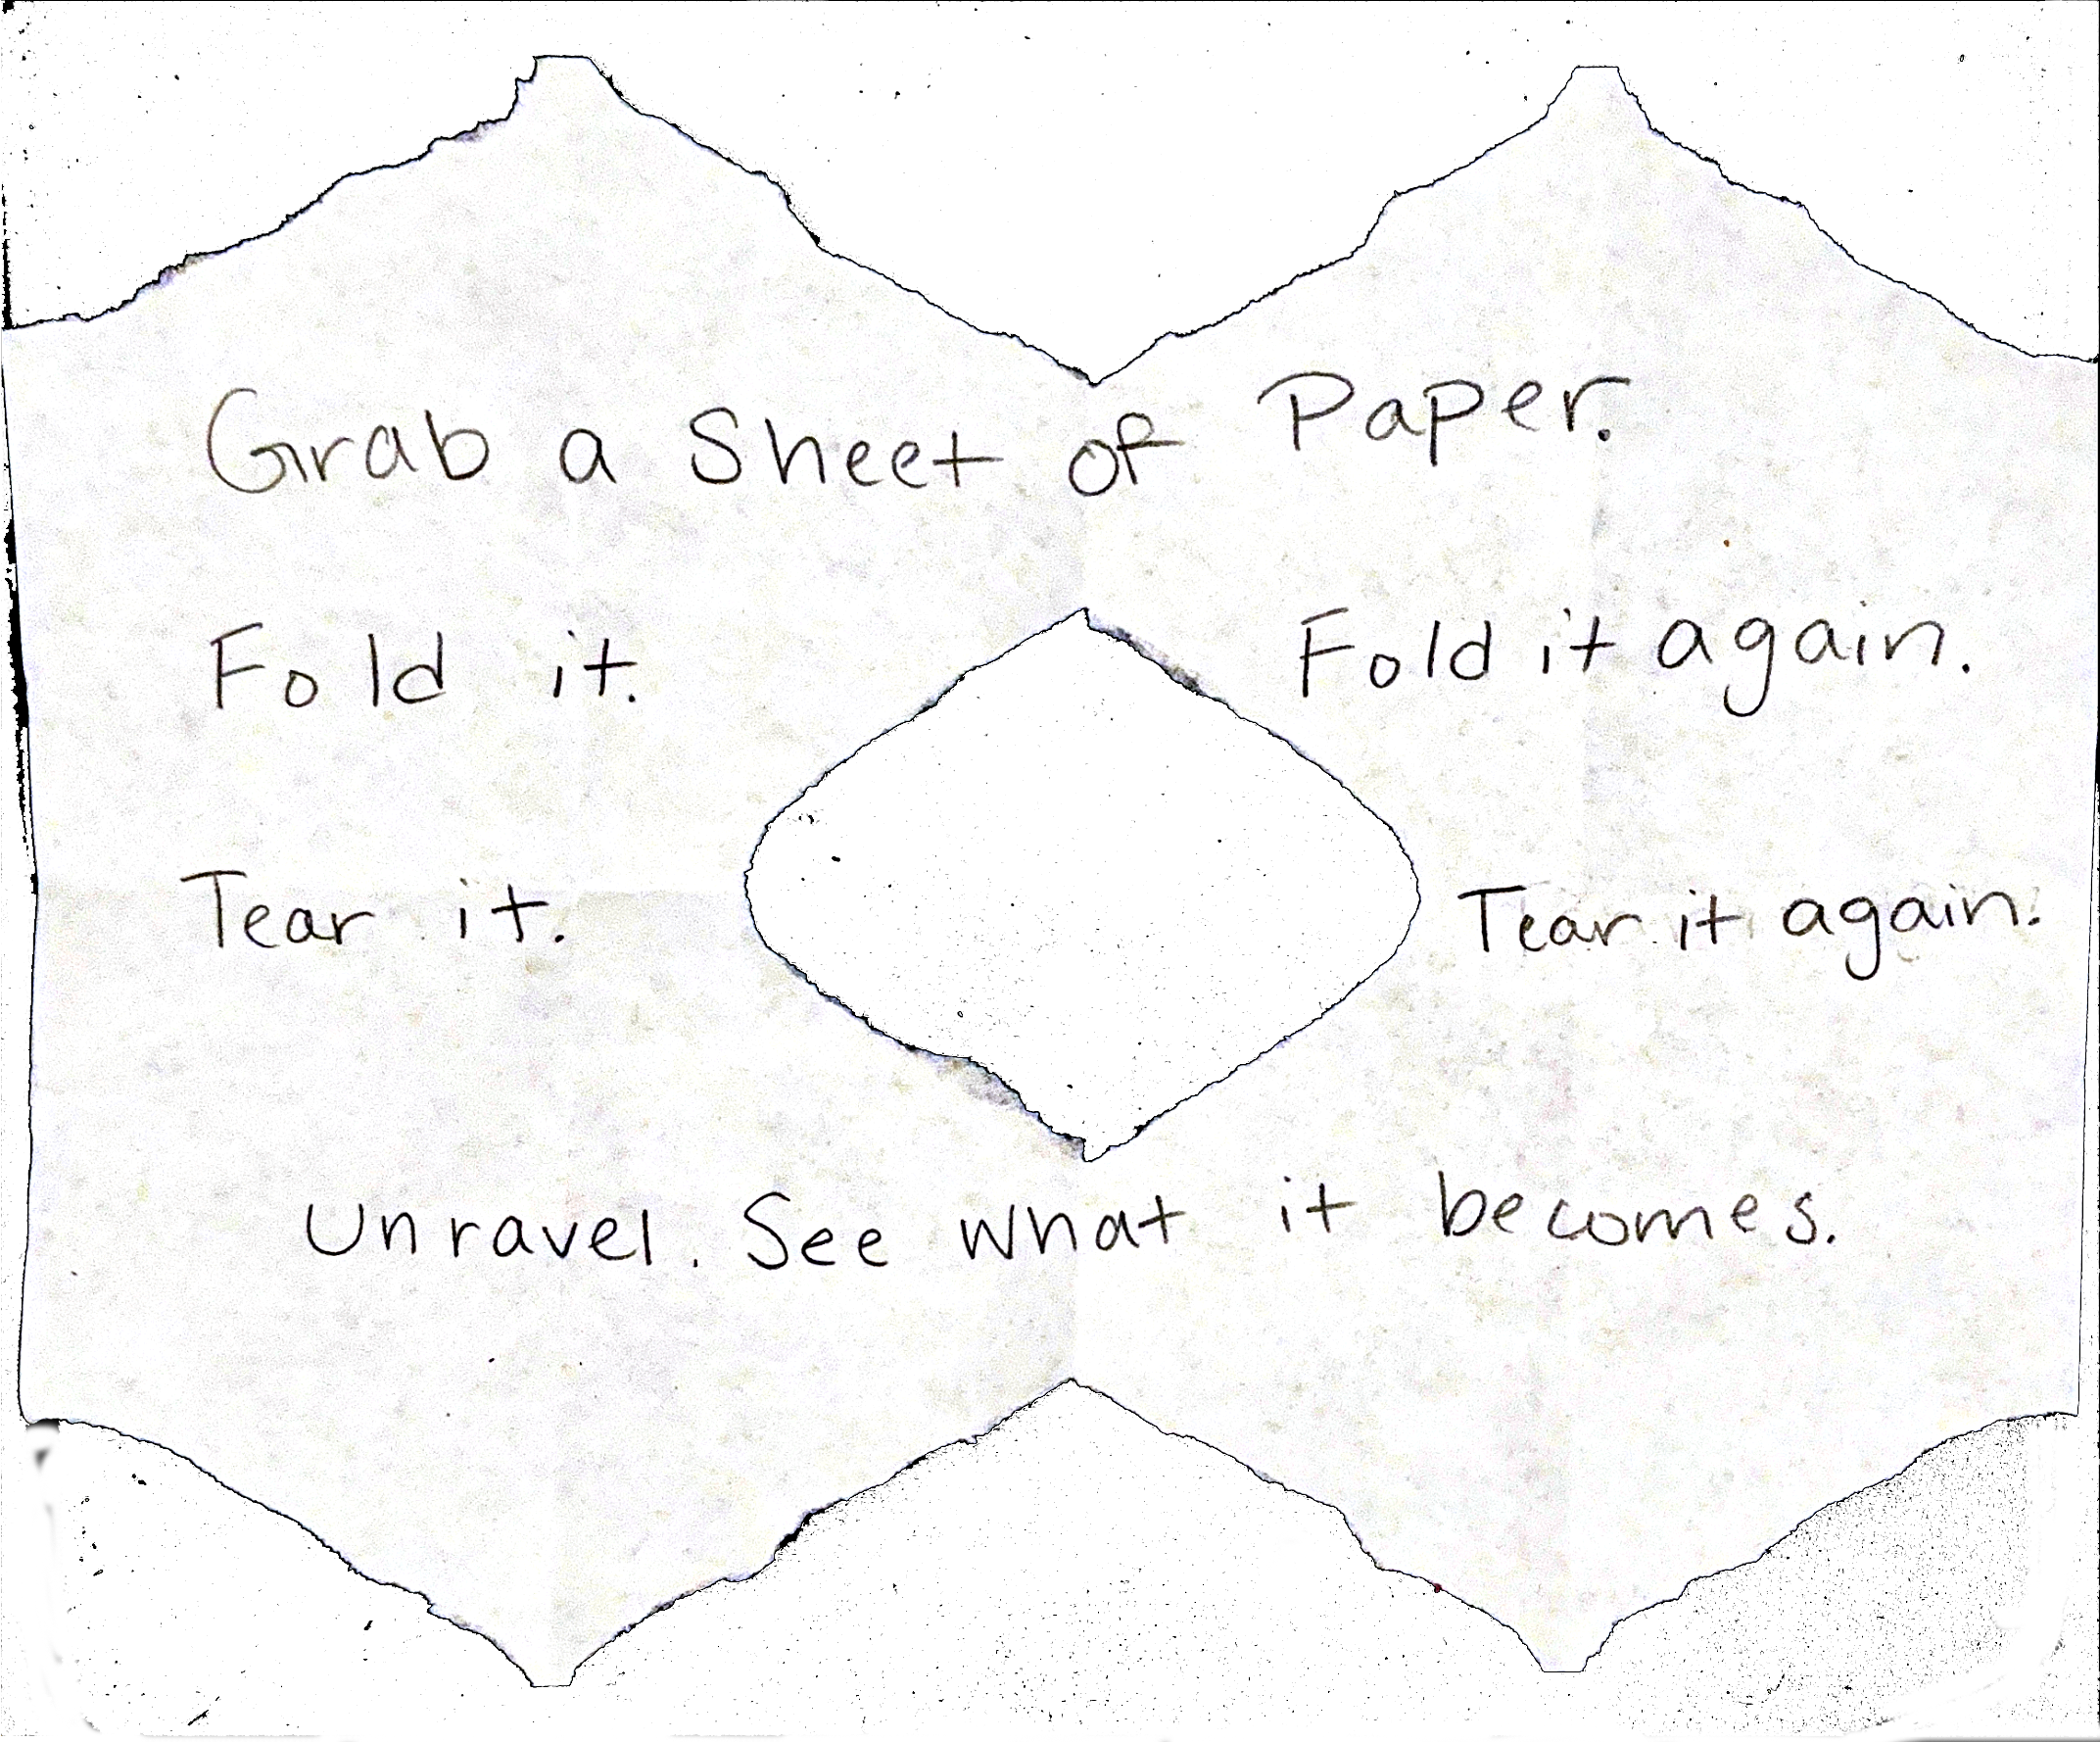 Grab a Sheet of Paper.
Fold it. Fold it again.
Tear it. Tear it again.
Unravel. See what it becomes.